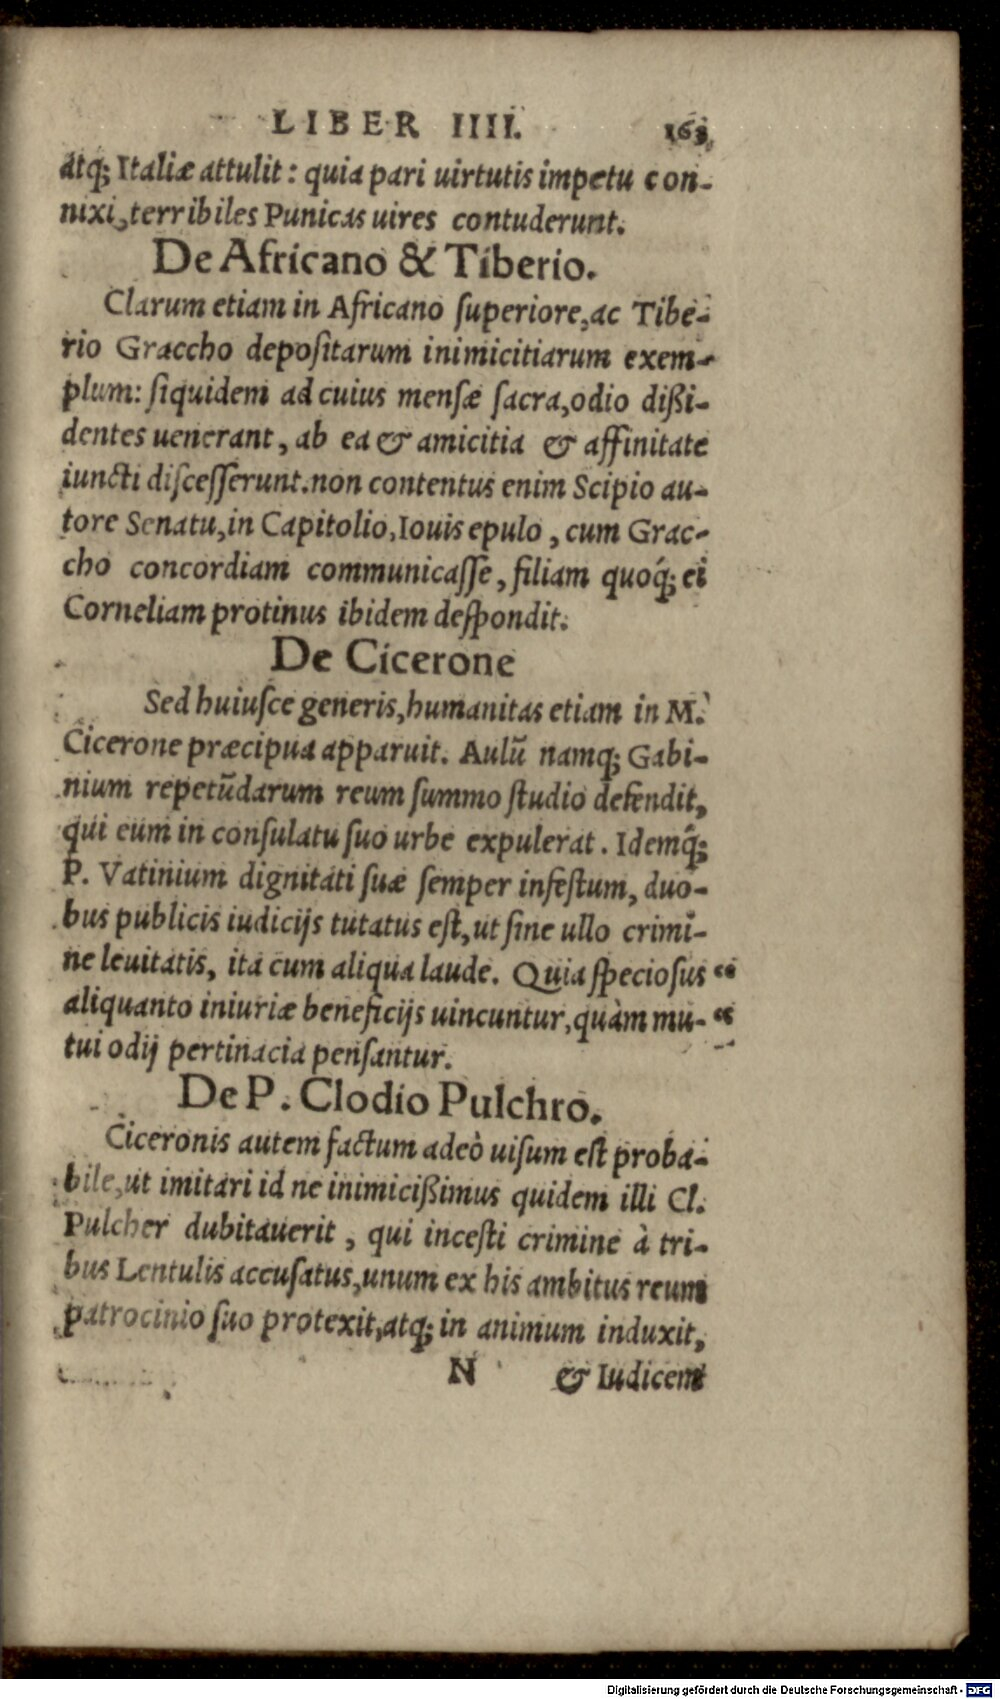 LIBER IIII. 163
atq; Italiæ attulit: quia pari uirtutis impetu con-
nixi, terribiles Punicas uires contuderunt.
De Africano & Tiberio.
Clarum etiam in Africano ſuperiore, ac Tibe-
rio Graccho depoſitarum inimicitiarum exem-
plum: ſiquidem ad cuius menſæ ſacra, odio dißi-
dentes uenerant, ab ea & amicitia & affinitate
iuncti diſceſſerunt. non contentus enim Scipio au-
tore Senatu, in Capitolio, Iouis epulo, cum Grac-
cho concordiam communicaſſe, filiam quoq́; ei
Corneliam protinus ibidem deſpondit.
De Cicerone
Sed huiuſce generis, humanitas etiam in M.
Cicerone præcipua apparuit. Aulū namq; Gabi-
nium repetūdarum reum ſummo ſtudio defendit,
qui eum in conſulatu ſuo urbe expulerat. Idemq́;
P. Vatinium dignitati ſuæ ſemper infeſtum, duo-
bus publicis iudicijs tutatus eſt, ut ſine ullo crimi-
ne leuitatis, ita cum aliqua laude. Quia ſpecioſus “
aliquanto iniuriæ beneficijs uincuntur, quàm mu- “
tui odij pertinacia penſantur.
De P. Clodio Pulchro.
Ciceronis autem factum adeò uiſum eſt proba-
bile, ut imitari id ne inimicißimus quidem illi Cl.
Pulcher dubitauerit, qui inceſti crimine à tri-
bus Lentulis accuſatus, unum ex his ambitus reum
patrocinio ſuo protexit, atq; in animum induxit,
N & Iudicem
Digitalisierung gefördert durch die Deutsche Forschungsgemeinschaft - DFG